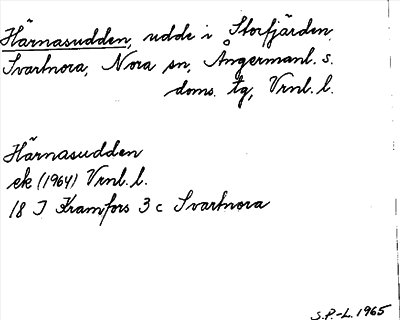 Härnasudden, udde i Storfjärden,
Svartnora, Nora sn, Ångermanl. s.
doms. tg, Vrnl. l.
Härnasudden
ek (1964) Vrnl. l.
18 I Kramfors 3 c Svartnora
S.P.-L. 1965